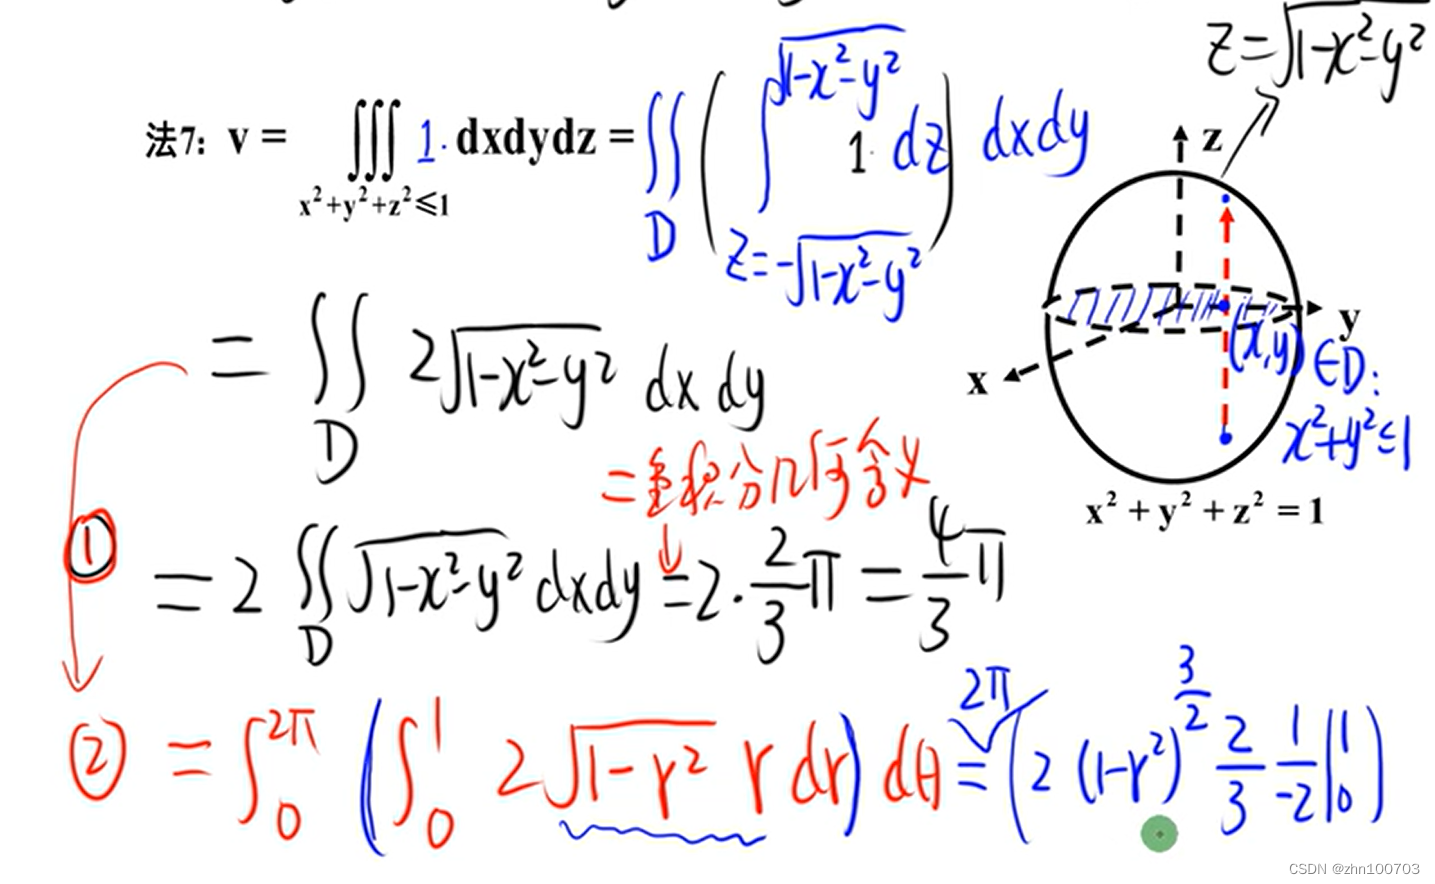 z=√(1-x²-y²)
法7: v = ∭_{x²+y²+z²≤1} 1· dxdydz = ∬_D ( ∫_{z=-√(1-x²-y²)}^{√(1-x²-y²)} 1· dz ) dxdy
z
y
x
(x,y) ∈D:
x²+y²≤1
x² + y² + z² = 1
= ∬_D 2√(1-x²-y²) dx dy
=重积分几何含义
① = 2 ∬_D √(1-x²-y²) dxdy = 2·2/3 π = 4/3 π
② = ∫_0^{2π} ( ∫_0^1 2√(1-r²) r dr ) dθ = 2π ( 2 (1-r²)^{3/2} 2/3 1/-2 |_0^1 )
CSDN @zhn100703